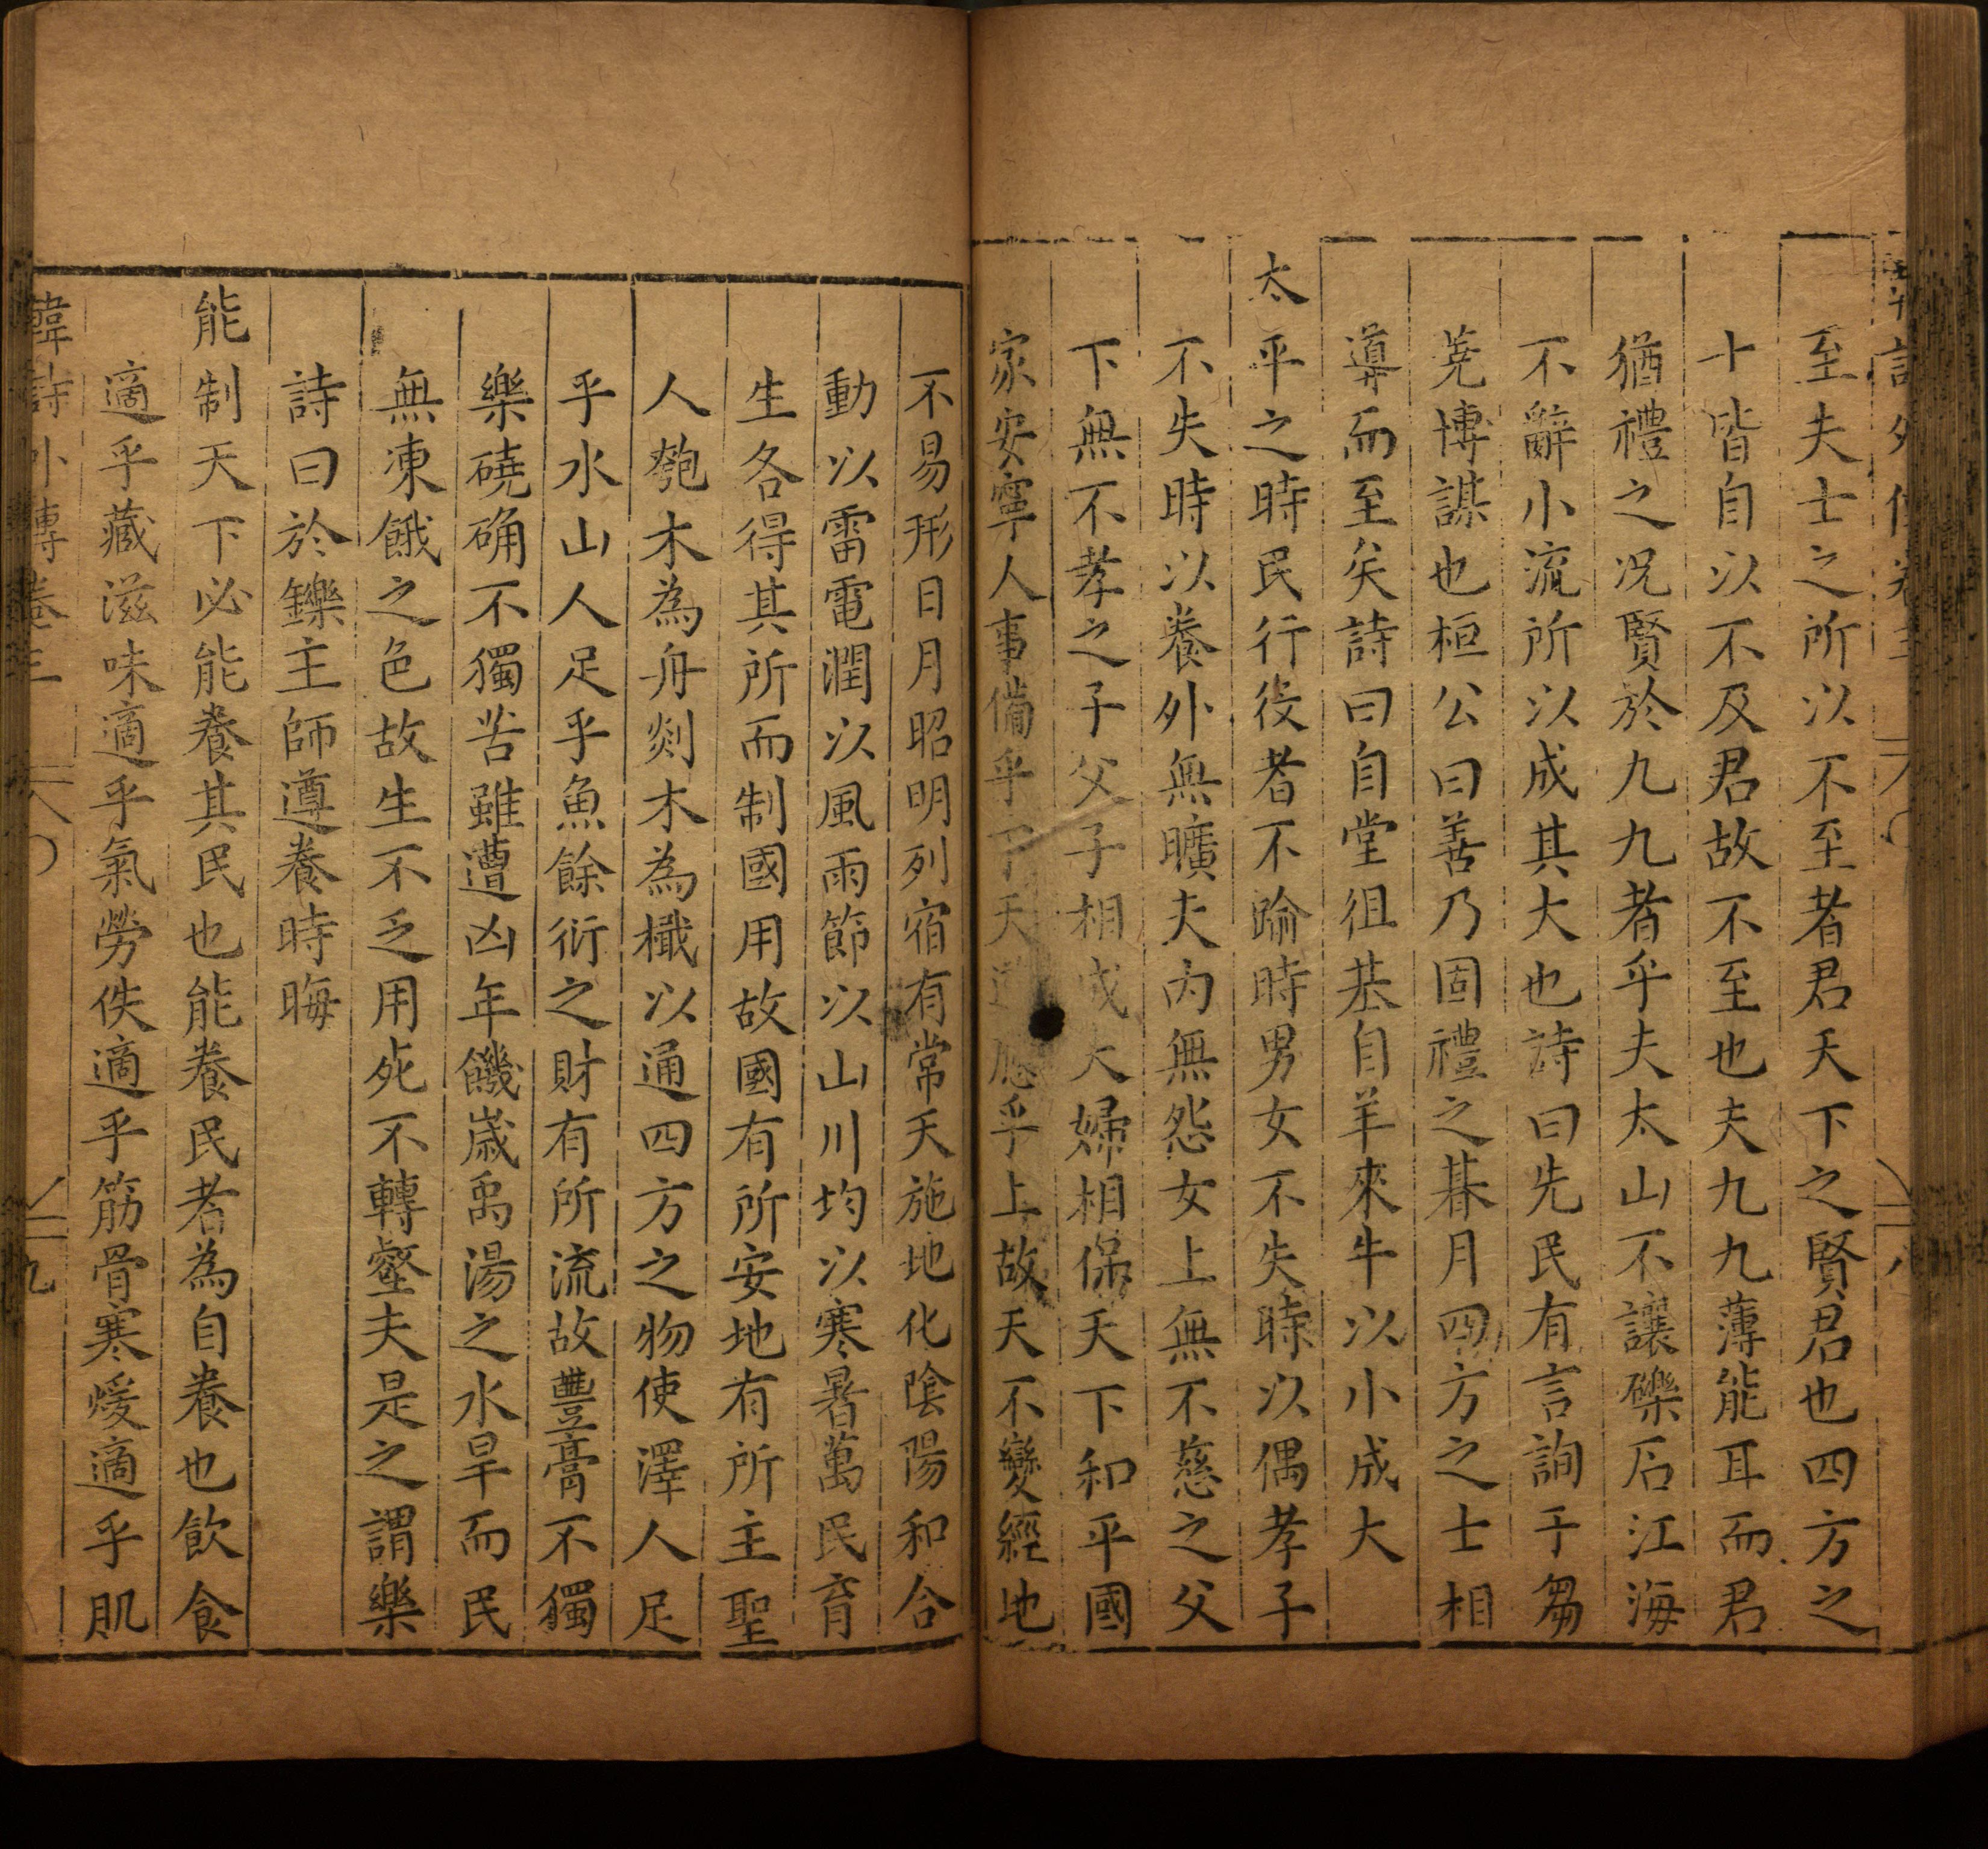 至夫士之所以不至者君天下之賢君也四方之
十皆自以不及君故不至也夫九九薄能耳而君
猶禮之况賢於九九者乎夫太山不讓礫石江海
不辭小流所以成其大也詩曰先民有言詢于芻
蕘博謀也桓公曰善乃固禮之朞月四方之士相
導而至矣詩曰自堂徂基自羊來牛以小成大
太平之時民行役者不踰時男女不失時以偶孝子
不失時以養外無曠夫内無怨女上無不慈之父
下無不孝之子父子相成夫婦相保天下和平國
家安寧人事備乎下天道應乎上故天不變經地
不易形日月昭明列宿有常天施地化陰陽和合
動以雷電潤以風雨節以山川均以寒暑萬民育
生各得其所而制國用故國有所安地有所主聖
人刳木為舟剡木為檝以通四方之物使澤人足
乎水山人足乎魚餘衍之財有所流故豐膏不獨
樂磽确不獨苦雖遭凶年饑嵗禹湯之水旱而民
無凍餓之色故生不乏用死不轉壑夫是之謂樂
詩曰於鑠主師遵養時晦
能制天下必能養其民也能養民者為自養也飲食
適乎藏滋味適乎氣勞佚適乎筋骨寒煖適乎肌
韓詩外傳卷三 九